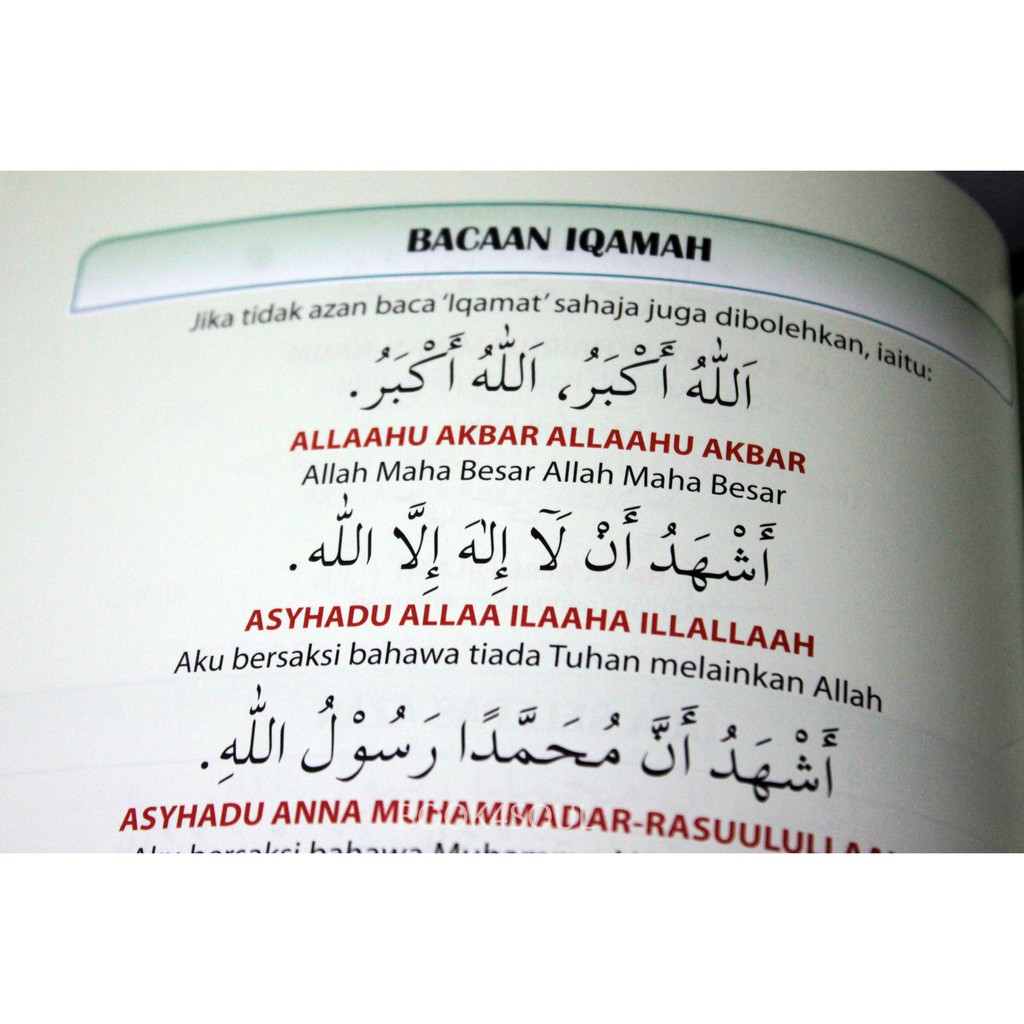 BACAAN IQAMAH
Jika tidak azan baca ‘Iqamat’ sahaja juga dibolehkan, iaitu:
اَللّٰهُ أَكْبَرُ، اَللّٰهُ أَكْبَرُ.
ALLAAHU AKBAR ALLAAHU AKBAR
Allah Maha Besar Allah Maha Besar
أَشْهَدُ أَنْ لَآ إِلٰهَ إِلَّا اللّٰه.
ASYHADU ALLAA ILAAHA ILLALLAAH
Aku bersaksi bahawa tiada Tuhan melainkan Allah
أَشْهَدُ أَنَّ مُحَمَّدًا رَسُوْلُ اللّٰهِ.
ASYHADU ANNA MUHAMMADAR-RASUULULLAA
Aku bersaksi bahawa